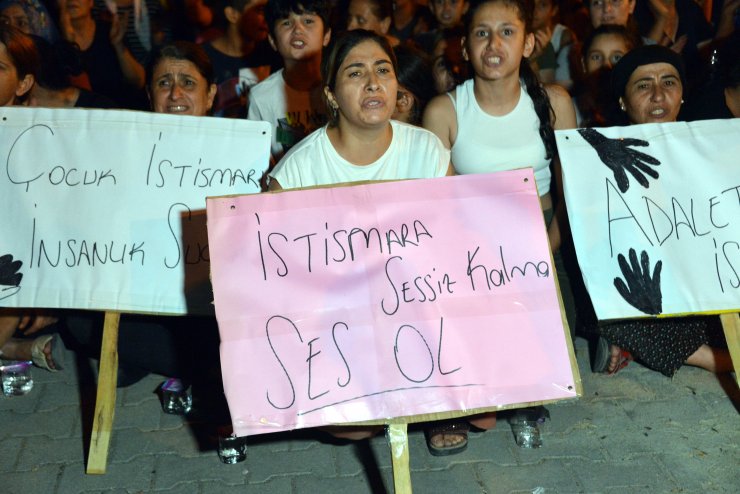 Çocuk İstismarı
İnsanlık Suçu
İSTİSMARA
SESSİZ KALMA
SES OL
ADALET
İS